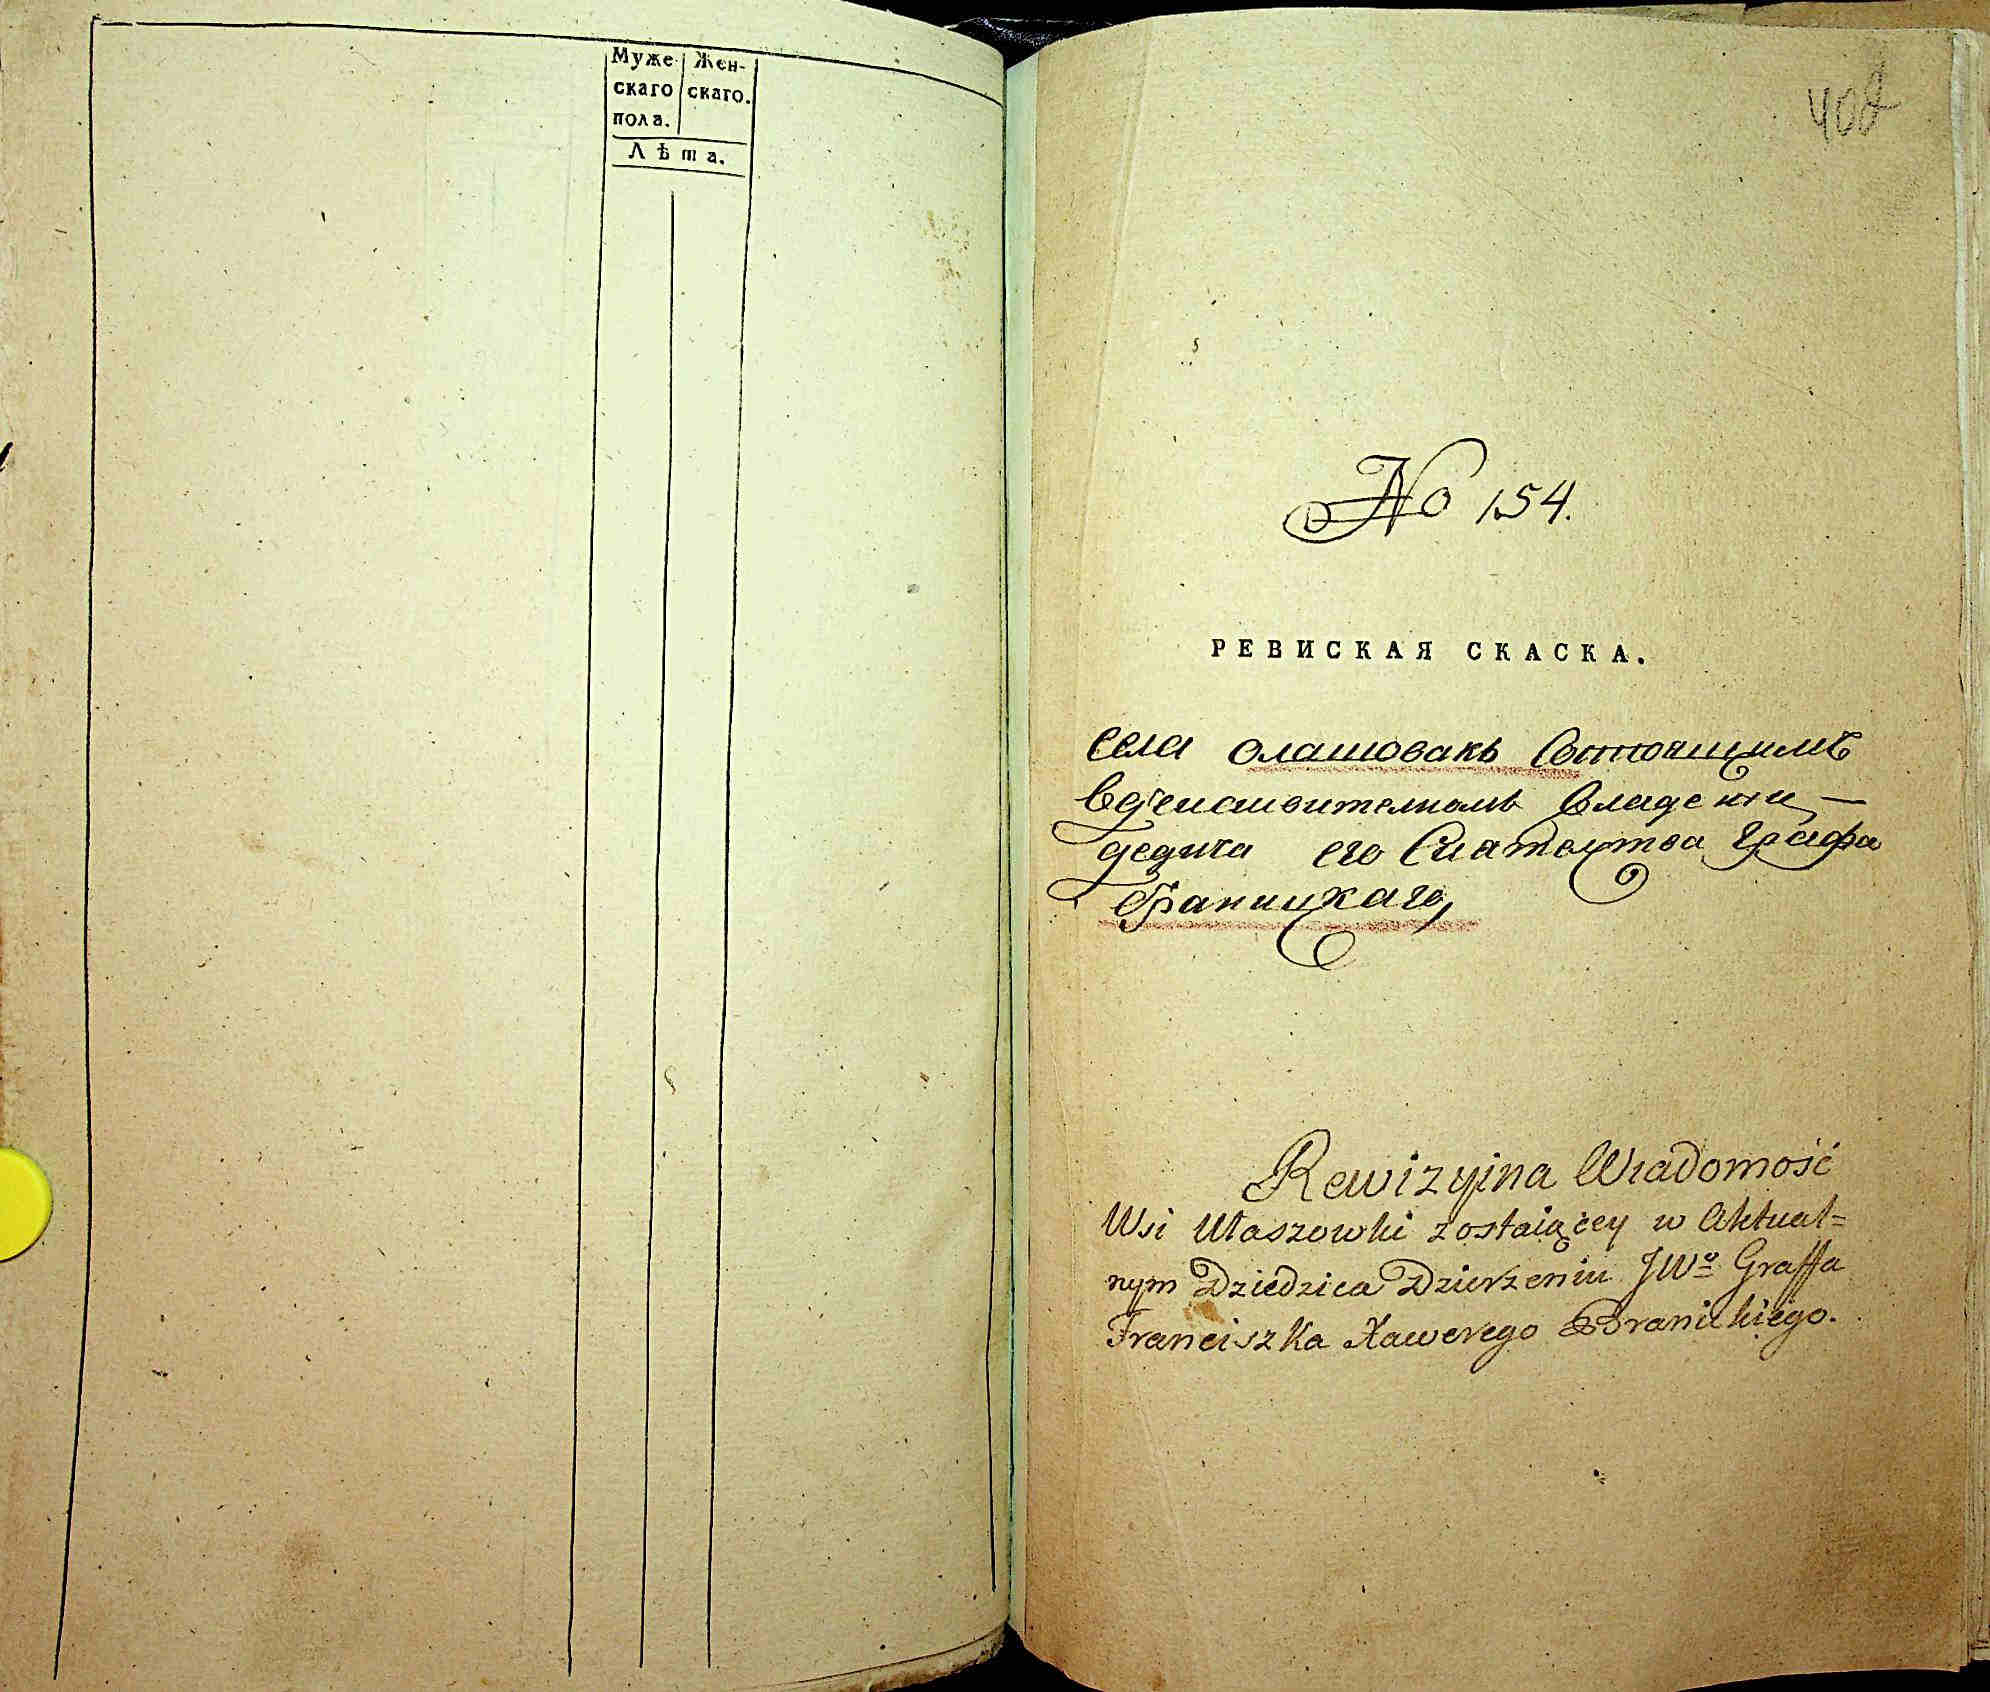 Муже Жен-
скаго скаго.
пола.
Лѣта.
402
No 154.
РЕВИСКАЯ СКАСКА.
села олашовакъ Состоящимъ
вдѣиствителномъ владении
дедича его Сиятелства Графа
Браницкаго
Rewizyjna Wiadomość
Wsi Ułaszowki zostaiącey w Aktual=
nym Dziedzica Dzierzeniu JWo Graffa
Franciszka Xawerego Branickiego.